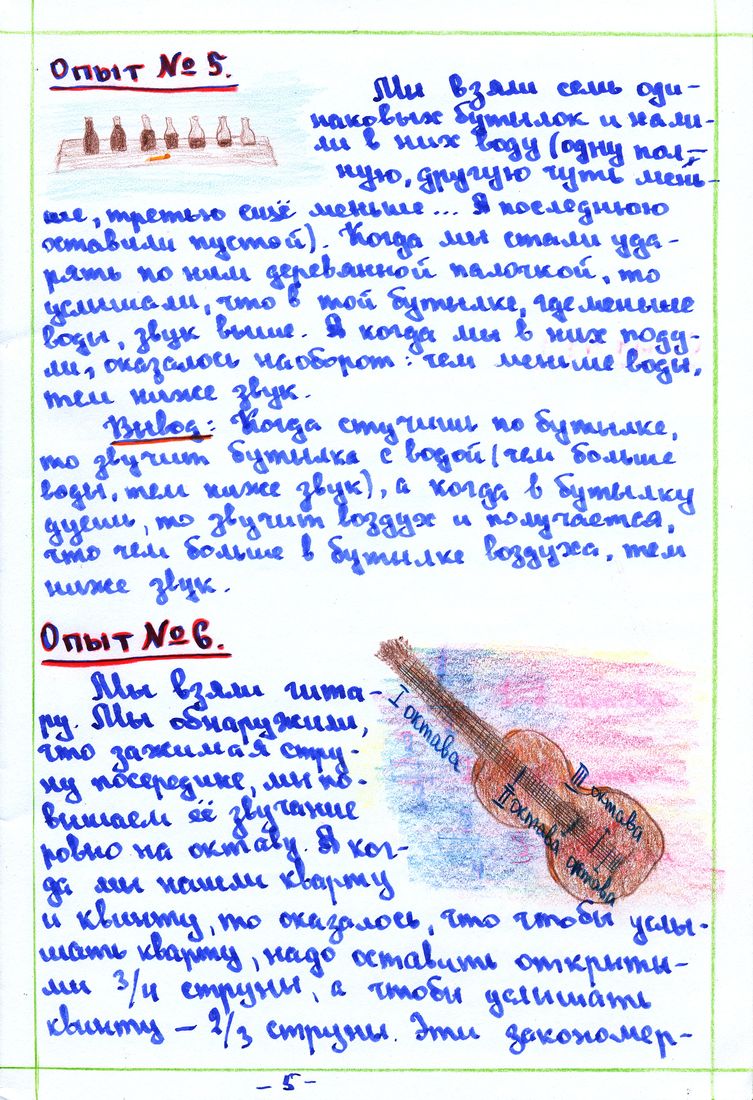 Опыт № 5.
Мы взяли семь оди-
наковых бутылок и нали-
ли в них воду (одну пол-
ную, другую чуть мень-
ше, третью ещё меньше... А последнюю
оставили пустой). Когда мы стали уда-
рять по ним деревянной палочкой, то
услышали, что в той бутылке, где меньше
воды, звук выше. А когда мы в них поду-
ли, оказалось наоборот: чем меньше воды,
тем ниже звук.
Вывод: Когда стучишь по бутылке,
то звучит бутылка с водой (чем больше
воды, тем ниже звук), а когда в бутылку
дуешь, то звучит воздух и получается,
что чем больше в бутылке воздуха, тем
ниже звук.
Опыт № 6.
Мы взяли гита-
ру. Мы обнаружили,
что зажимая стру-
ну посередине, мы по-
вышаем её звучание
ровно на октаву. А ког-
да мы нашли кварту
и квинту, то оказалось, что чтобы услы-
шать кварту, надо оставить открыты-
ми 3/4 струны, а чтобы услышать
квинту – 2/3 струны. Эти закономер-
I октава
II октава
III октава
октава
- 5 -